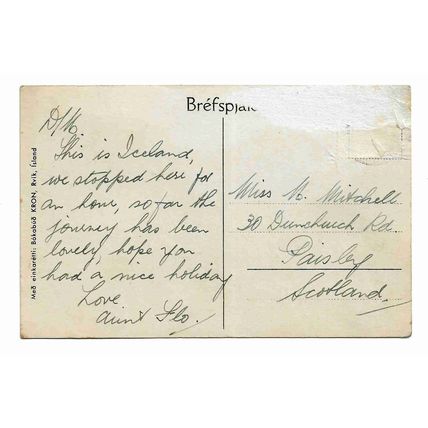 Bréfspjald
D/M.
This is Iceland,
we stopped here for
an hour, so far the
journey has been
lovely, hope you
had a nice holiday
Love
Aunt Flo.
Miss M. Mitchell
30 Dunchurch Rd.
Paisley
Scotland.
Með einkarétti: Bókabúð KRON, Rvík, Ísland